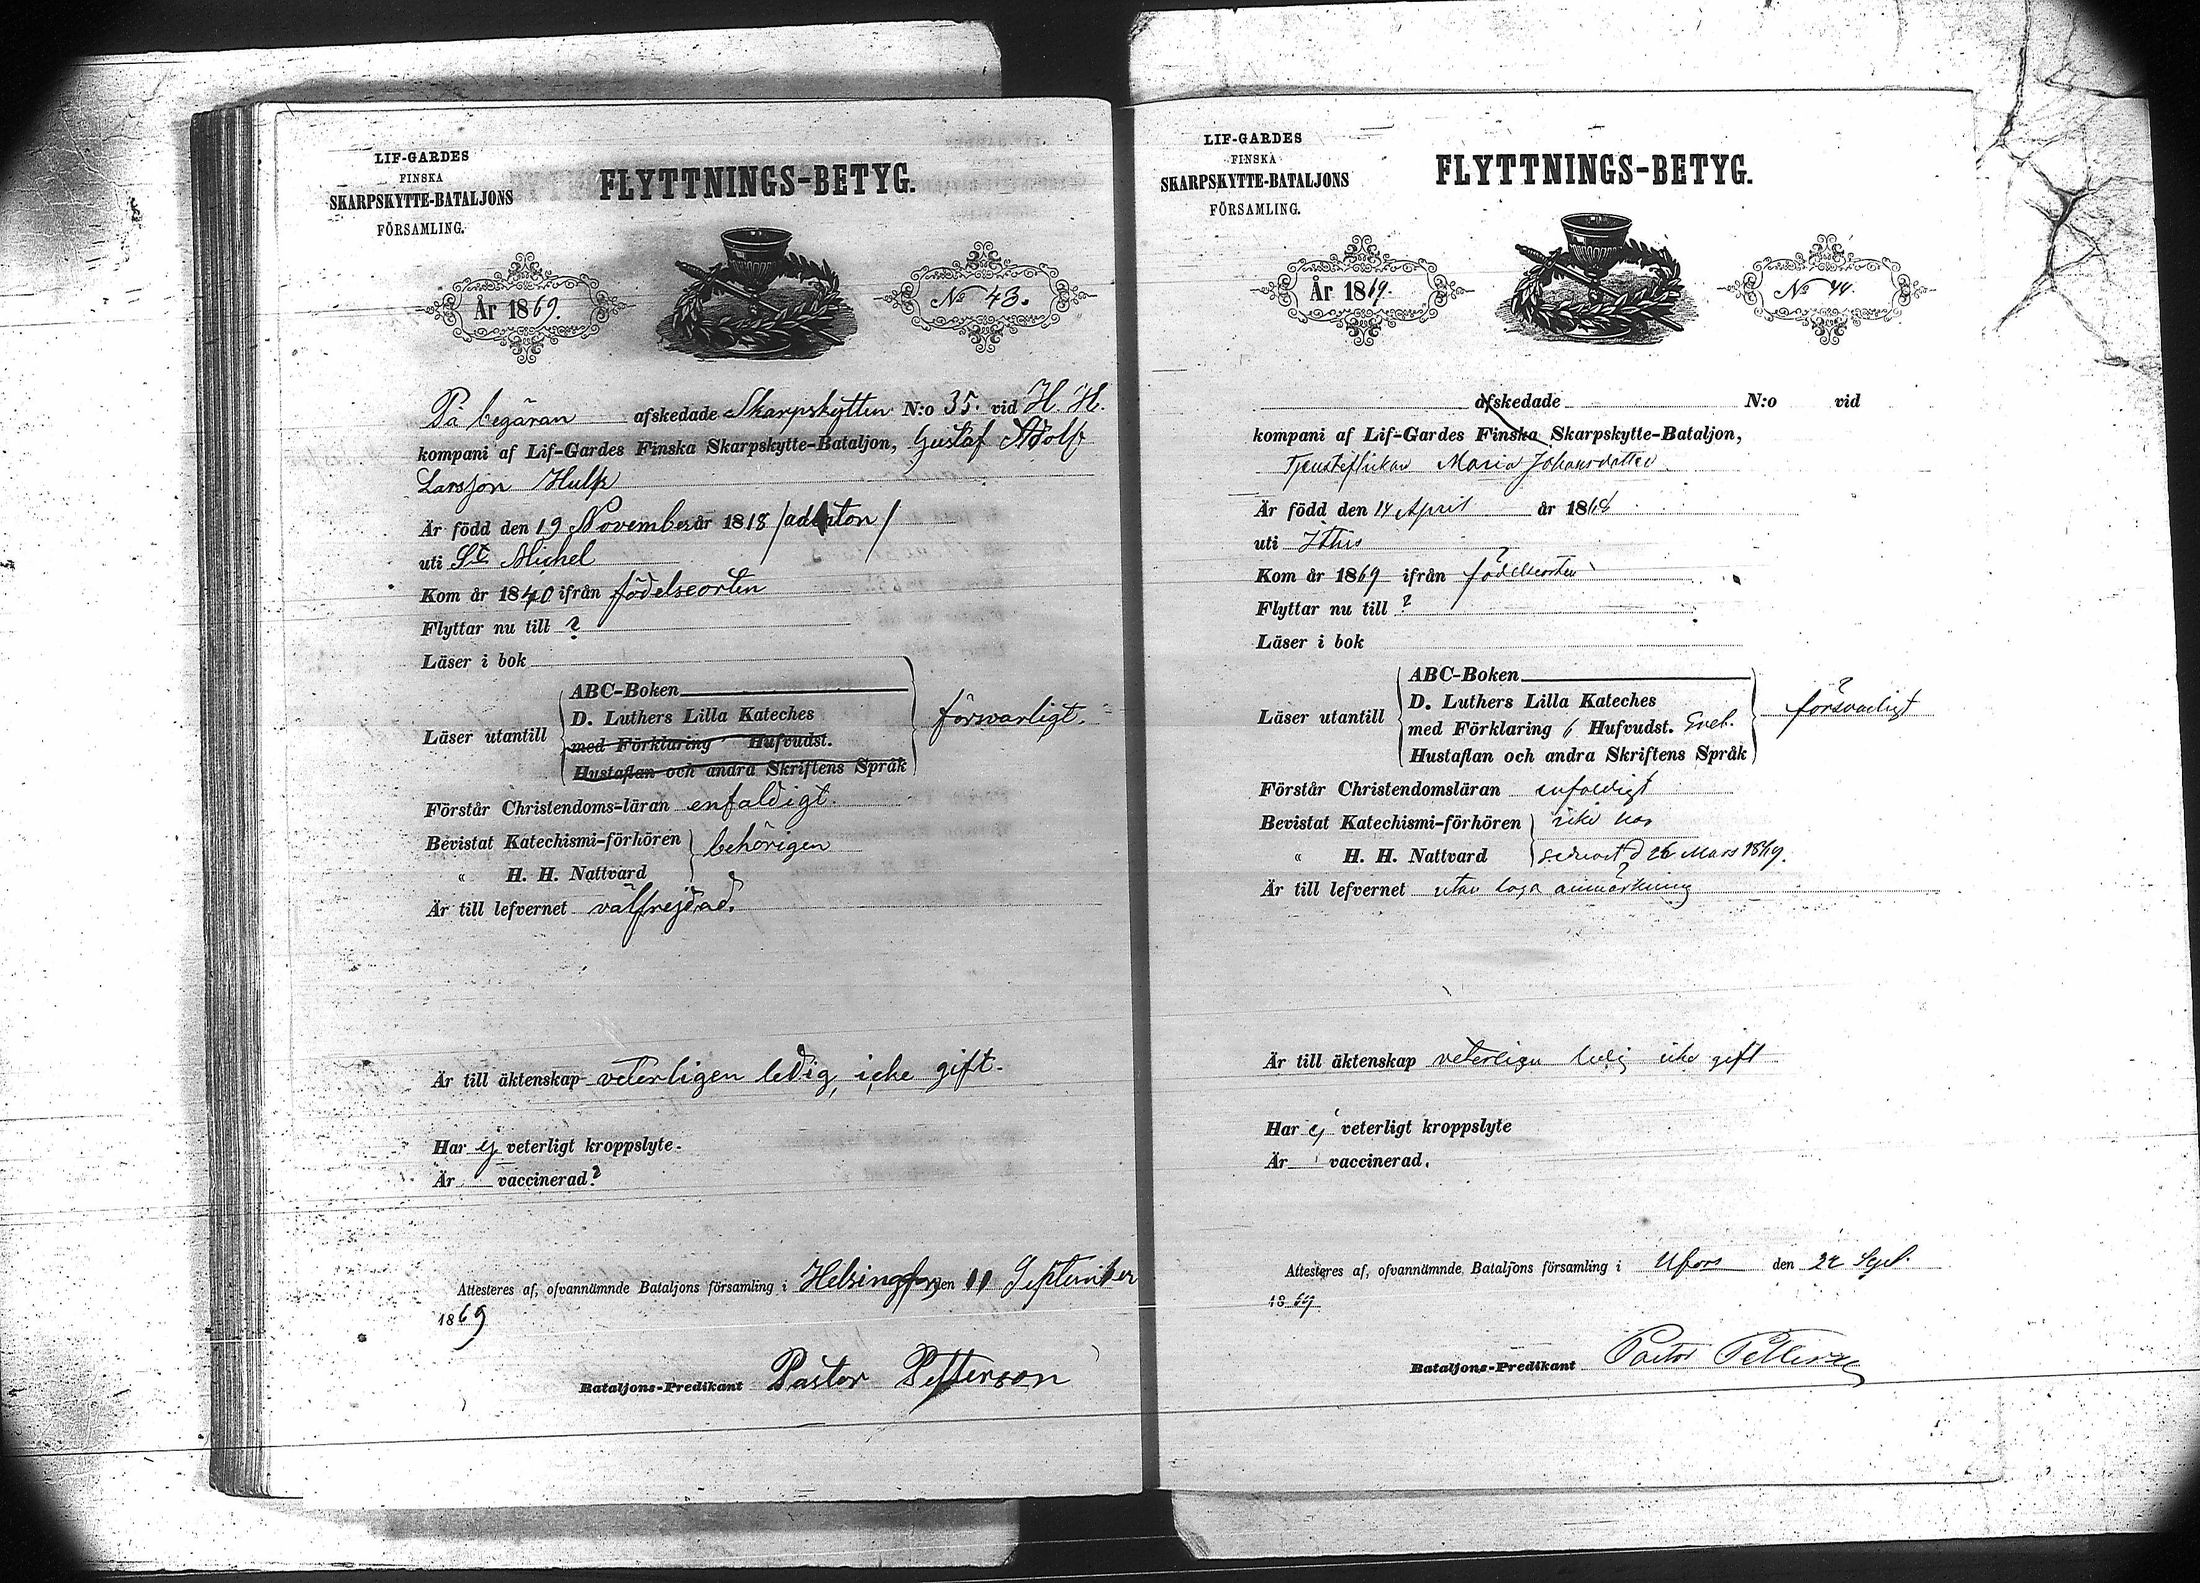 LIF-GARDES
FINSKA
SKARPSKYTTE-BATALJONS
FÖRSAMLING.
FLYTTNINGS-BETYG.
År 1869.
No 43.
På begäran afskedade Skarpskytten N:o 35. vid H. H.
kompani af Lif-Gardes Finska Skarpskytte-Bataljon, Gustaf Adolf
Larsson Hulk
Är född den 19 November år 1818 /aderton/
uti St Michel
Kom år 1840 ifrån födelseorten
Flyttar nu till ?
Läser i bok
Läser utantill
ABC-Boken
D. Luthers Lilla Kateches
med Förklaring Hufvudst.
Hustaflan och andra Skriftens Språk
försvarligt.
Förstår Christendoms-läran enfaldigt.
Bevistat Katechismi-förhören
behörigen
" H. H. Nattvard
Är till lefvernet välfrejdad.
Är till äktenskap veterligen ledig, icke gift.
Har ej veterligt kroppslyte.
Är vaccinerad?
Attesteres af, ofvannämnde Bataljons församling i Helsingfors den 11 September
1869
Bataljons-Predikant Pastor Petterson
LIF-GARDES
FINSKA
SKARPSKYTTE-BATALJONS
FÖRSAMLING.
FLYTTNINGS-BETYG.
År 1869.
No 44.
afskedade N:o vid
kompani af Lif-Gardes Finska Skarpskytte-Bataljon,
Tjensteflickan Maria Johansdotter
Är född den 14 April år
uti
Kom år 1869 ifrån födelseorten
Flyttar nu till ?
Läser i bok
Läser utantill
ABC-Boken
D. Luthers Lilla Kateches
med Förklaring 6 Hufvudst.
Hustaflan och andra Skriftens Språk
försvarligt
Förstår Christendomsläran enfaldigt
Bevistat Katechismi-förhören icke här
" H. H. Nattvard senast d 26 Mars 1869.
Är till lefvernet utan laga anmärkning
Är till äktenskap veterligen ledig icke gift
Har ej veterligt kroppslyte
Är vaccinerad.
Attesteres af, ofvannämnde Bataljons församling i Hfors den 22 Sept.
1869
Bataljons-Predikant Pastor Petterson